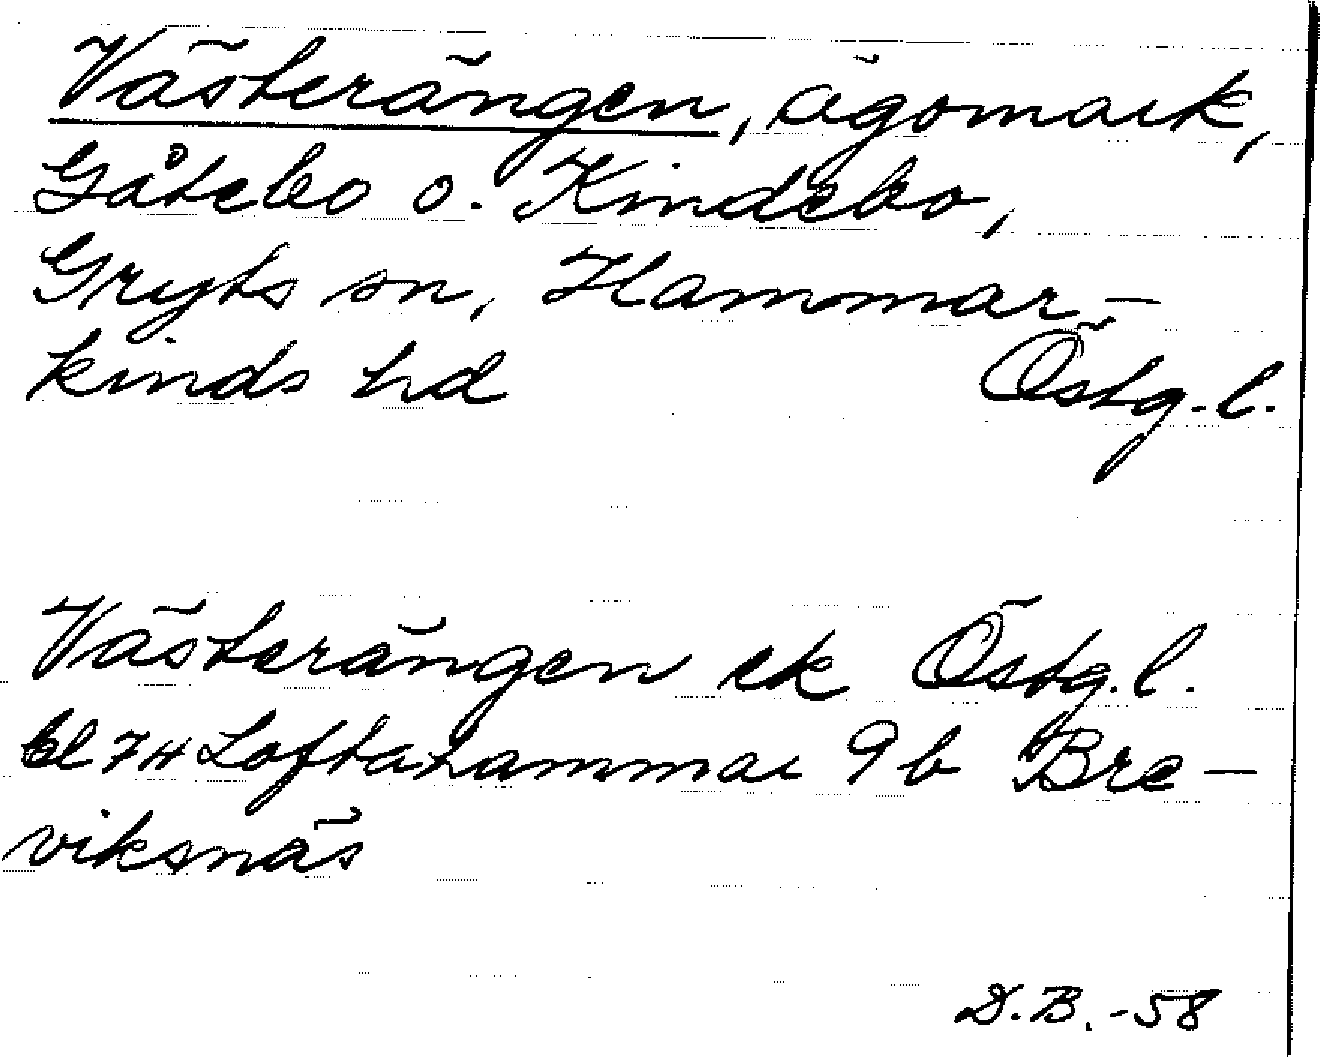 Västerängen, ägomark,
Gåtebo o. Kindebo,
Gryts sn, Hammar-
kinds hd Östg. l.
Västerängen ek Östg. l.
bl 7H Loftahammar 9b Bre-
viksnäs
D.B.-58